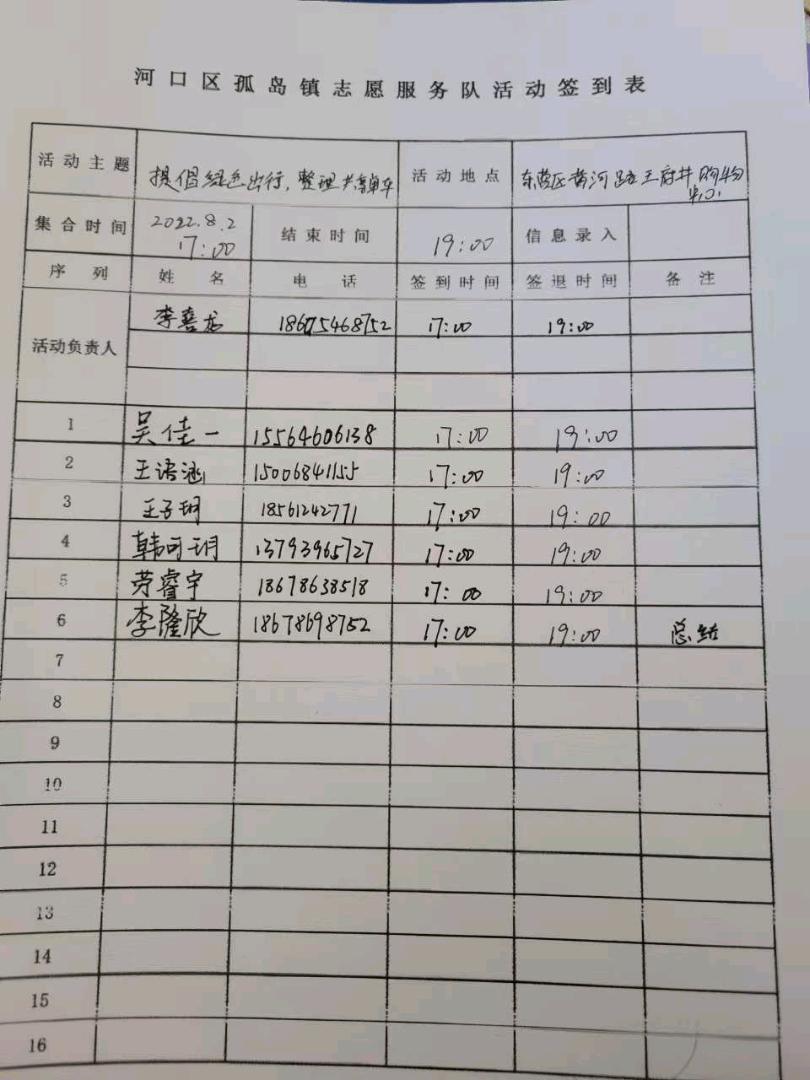 河口区孤岛镇志愿服务队活动签到表
活动主题 提倡绿色出行,整理共享单车 活动地点 东营区黄河路王府井购物中心
集合时间 2022.8.2 17:00 结束时间 19:00 信息录入
序列 姓名 电话 签到时间 签退时间 备注
活动负责人 李喜龙 18675468752 17:00 19:00
1 吴佳一 15564606138 17:00 19:00
2 王语涵 15006841155 17:00 19:00
3 王子玥 18561242771 17:00 19:00
4 韩可玥 13793965727 17:00 19:00
5 劳睿宇 18678638518 17:00 19:00
6 李隆欣 18678698752 17:00 19:00 总结
7
8
9
10
11
12
13
14
15
16